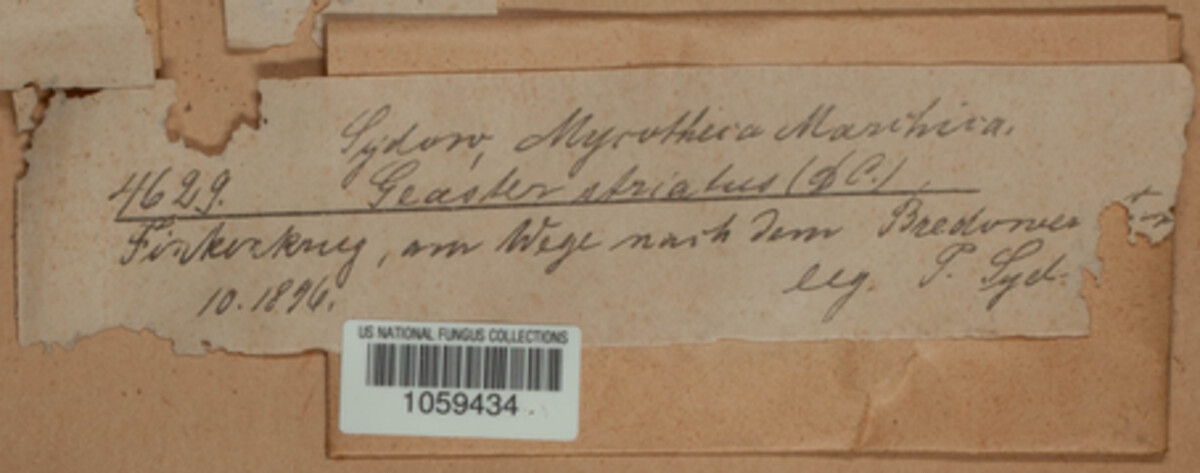 Sydow, Mycotheca Marchica.
4629. Geaster striatus (DC.)
Finkenkrug, am Wege nach dem Bredower
10.1896. leg. P. Syd.
US NATIONAL FUNGUS COLLECTIONS
1059434